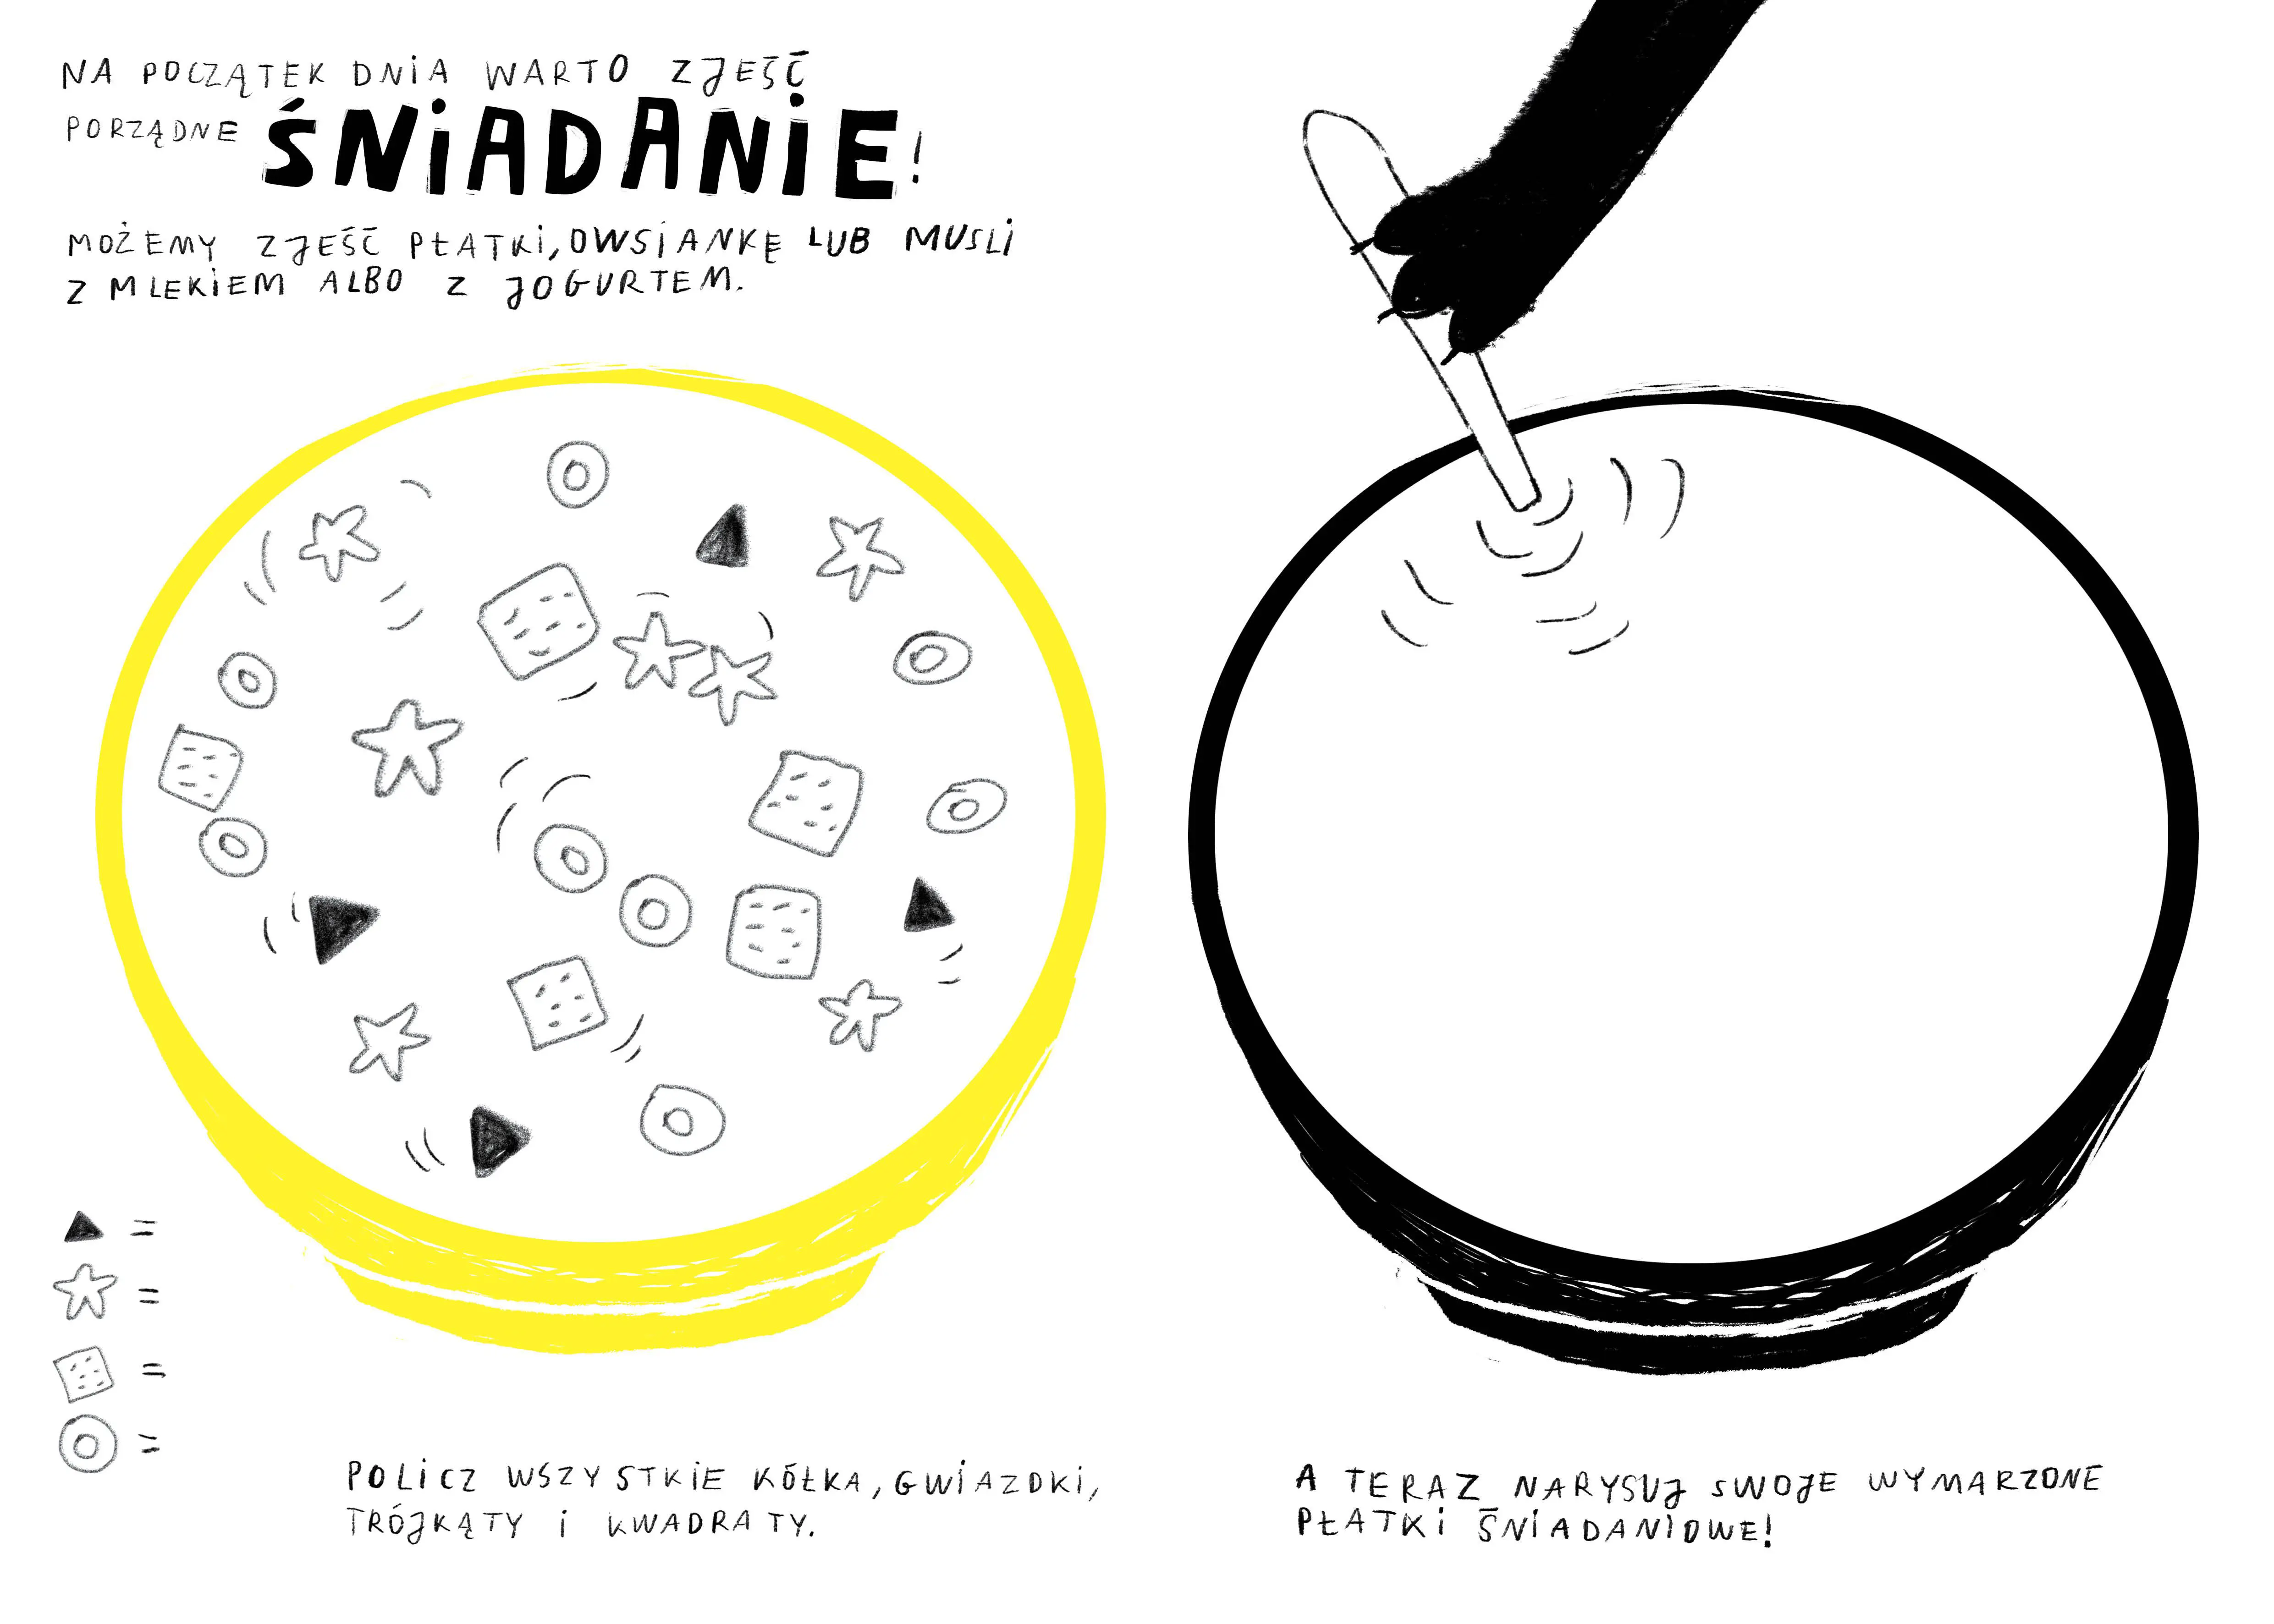 NA POCZĄTEK DNIA WARTO ZJEŚĆ
PORZĄDNE ŚNIADANIE!
MOŻEMY ZJEŚĆ PŁATKI, OWSIANKĘ LUB MUSLI
Z MLEKIEM ALBO Z JOGURTEM.
=
=
=
=
POLICZ WSZYSTKIE KÓŁKA, GWIAZDKI,
TRÓJKĄTY I KWADRATY.
A TERAZ NARYSUJ SWOJE WYMARZONE
PŁATKI ŚNIADANIOWE!